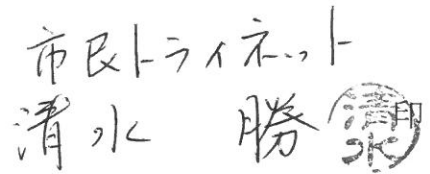 市民トライネット
清水 勝 印
清水